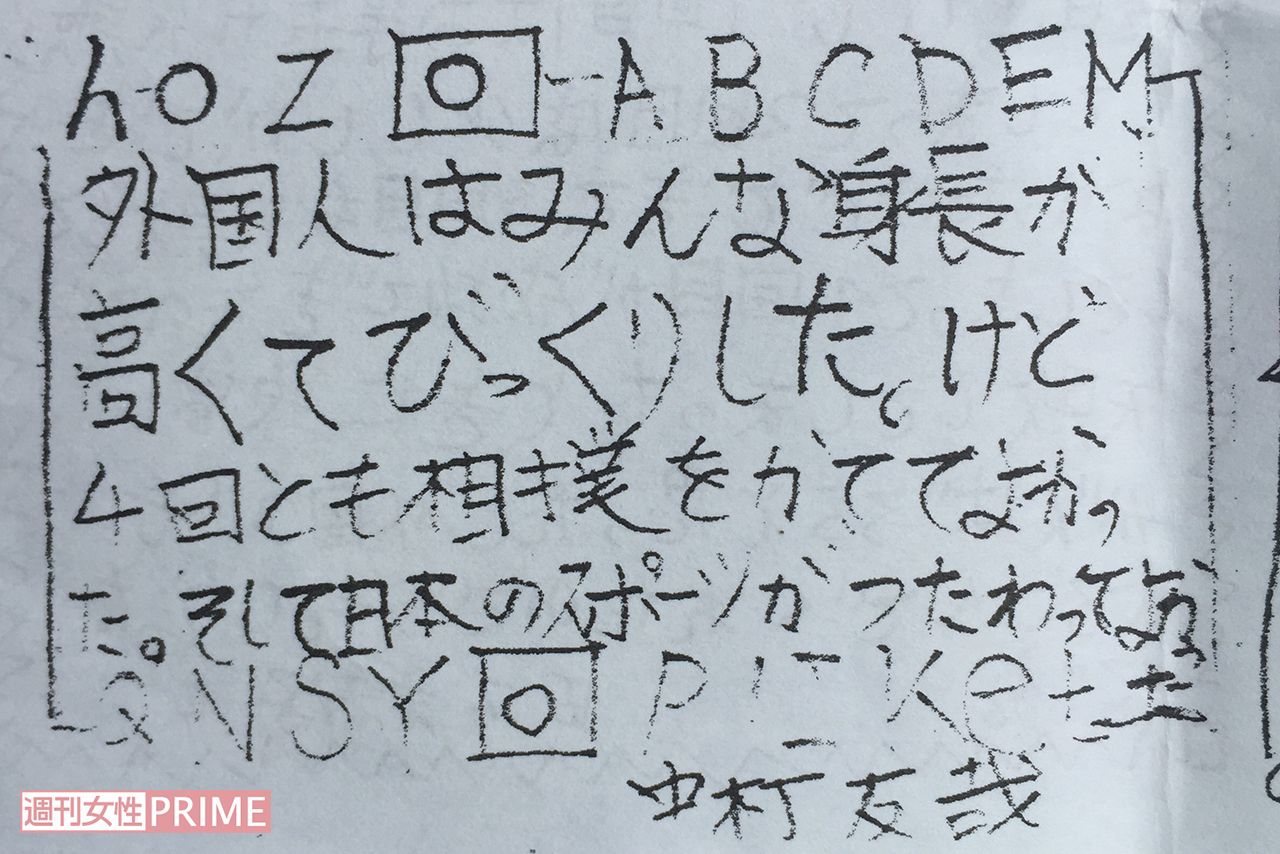 hoZ ABCDEM
外国人はみんな身長が
高くてびっくりした。けど
4回とも相撲をがててよかっ
た。そして日本のスポーツがつたわってよ
QNSY P
中村友哉
週刊女性PRIME